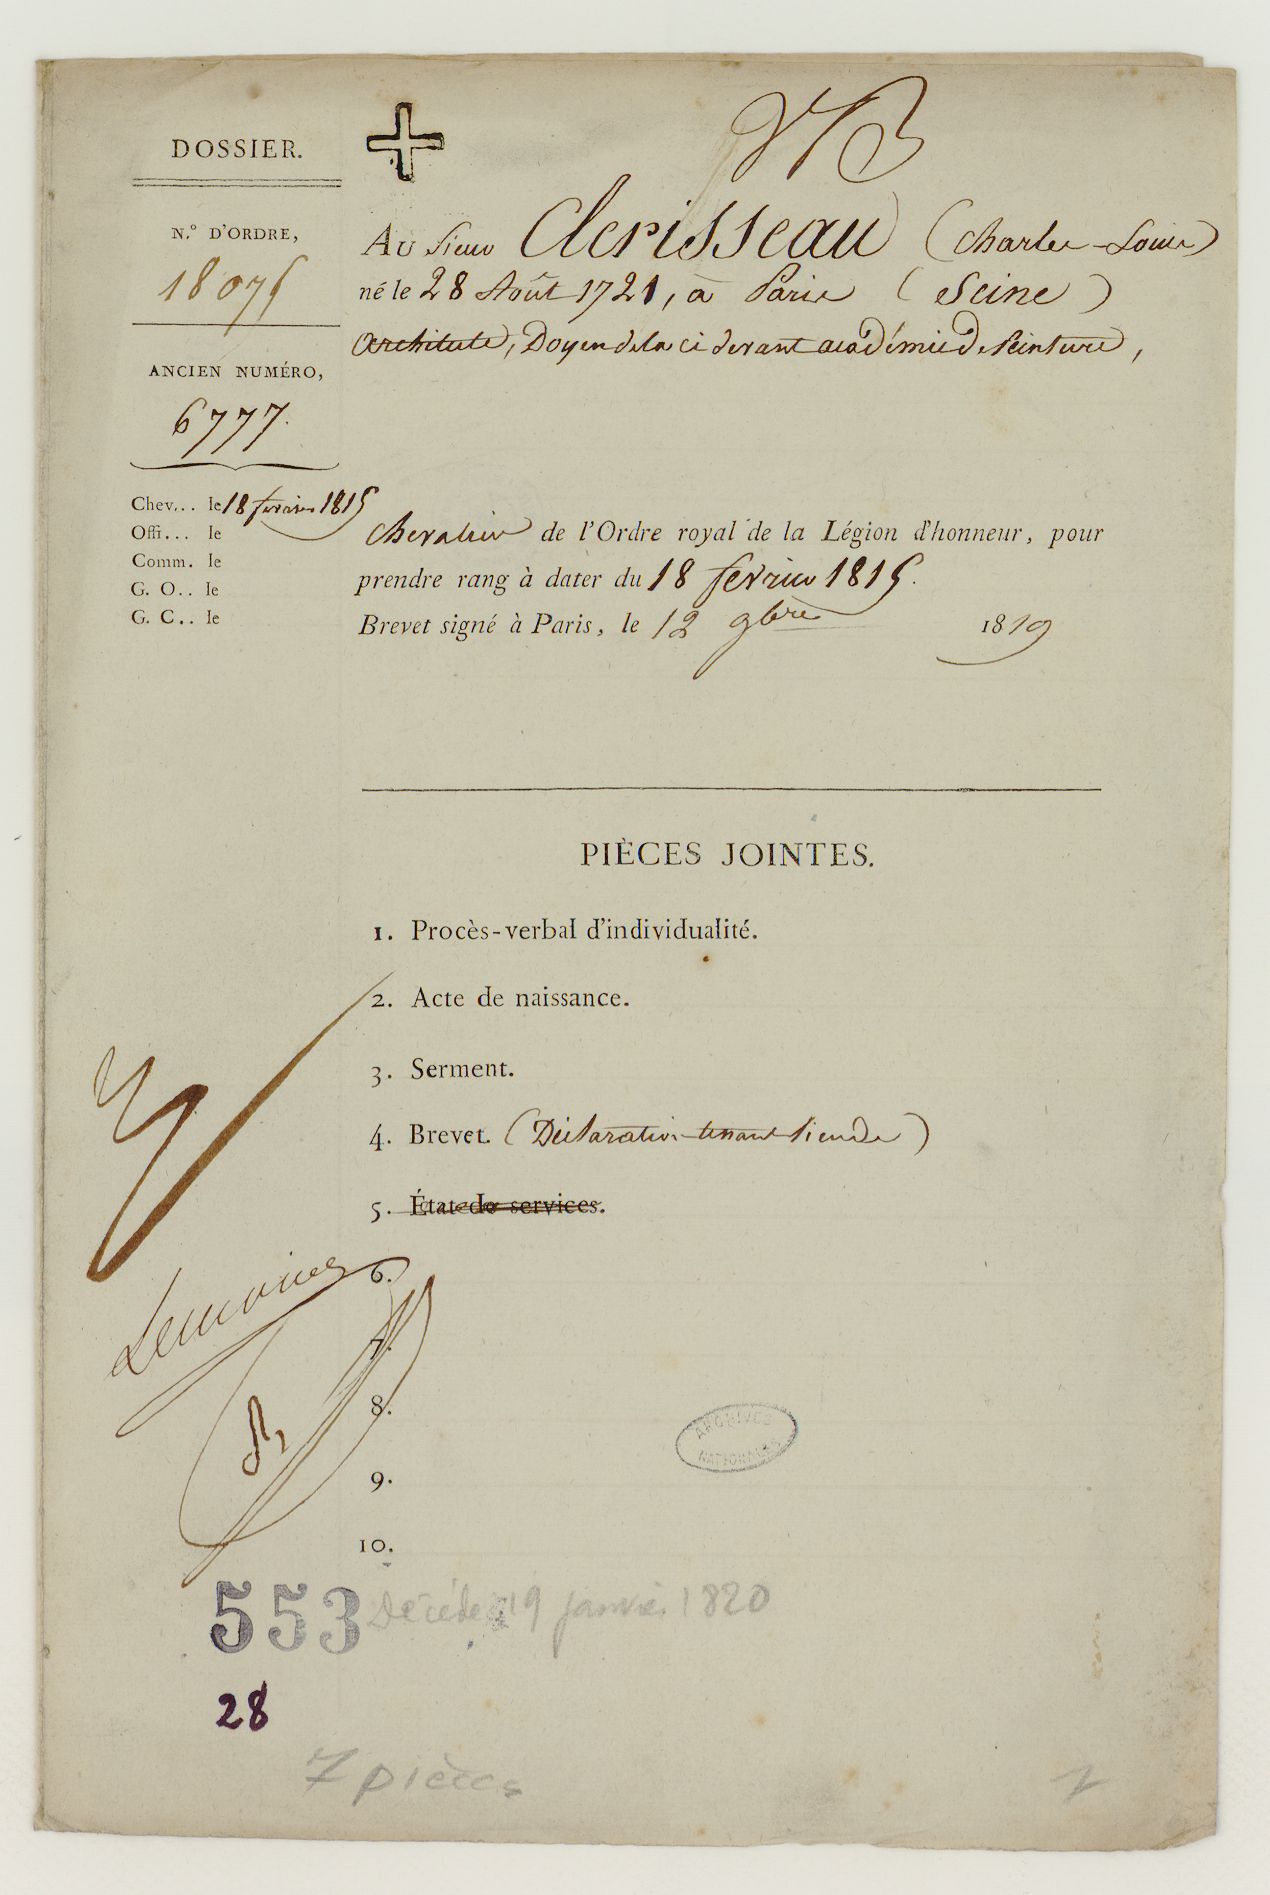 DOSSIER.
N.º D'ORDRE,
18075
ANCIEN NUMÉRO,
6777.
Chev... le 18 fevrier 1815
Offi... le
Comm. le
G. O.. le
G. C.. le
Au Sieur Clerisseau (Charles-Louis)
né le 28 Août 1721, à Paris (Seine)
Architecte, Doyen de la ci devant académie de Peinture,
Chevalier de l'Ordre royal de la Légion d'honneur, pour
prendre rang à dater du 18 fevrier 1815.
Brevet signé à Paris, le 12 9bre 1819
PIÈCES JOINTES.
1. Procès-verbal d'individualité.
2. Acte de naissance.
3. Serment.
4. Brevet. (Déclaration tenant lieu de)
5. État de services.
6.
7.
8.
9.
10.
Lemoine
ARCHIVES
NATIONALES
553
Décédé 19 janvier 1820
28
7 pièces